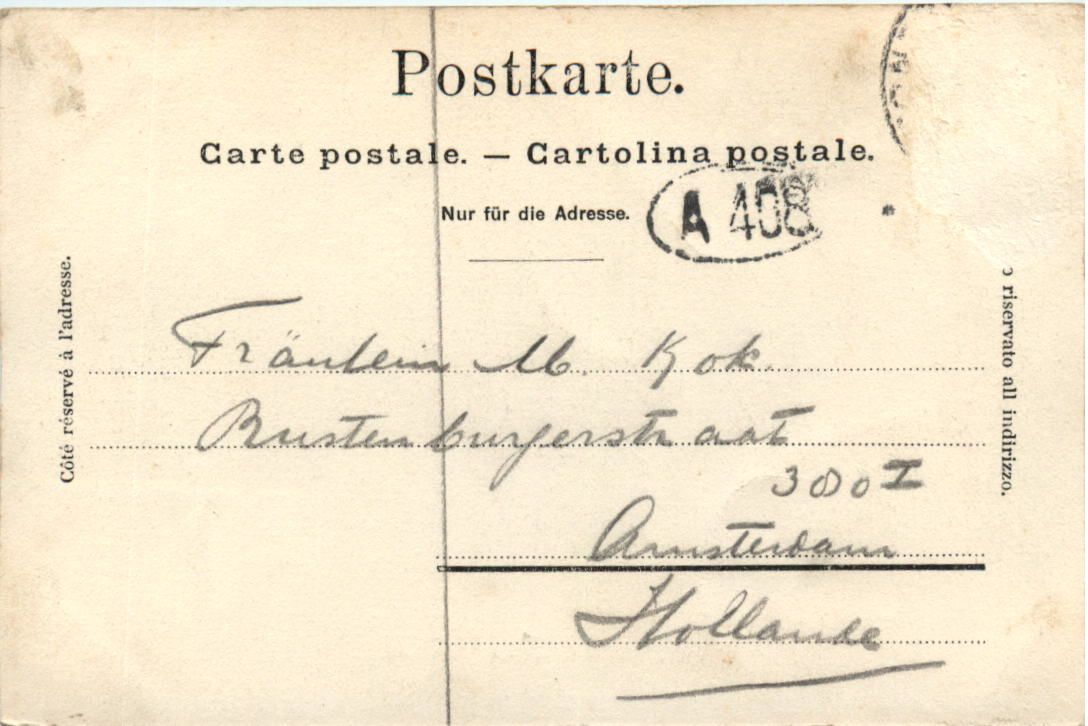 Postkarte.
Carte postale. — Cartolina postale.
Nur für die Adresse.
A 408
Côté réservé à l'adresse.
riservato all indirizzo.
Fräulein M. Kok.
Rustenburgerstraat
380 I
Amsterdam
Hollande